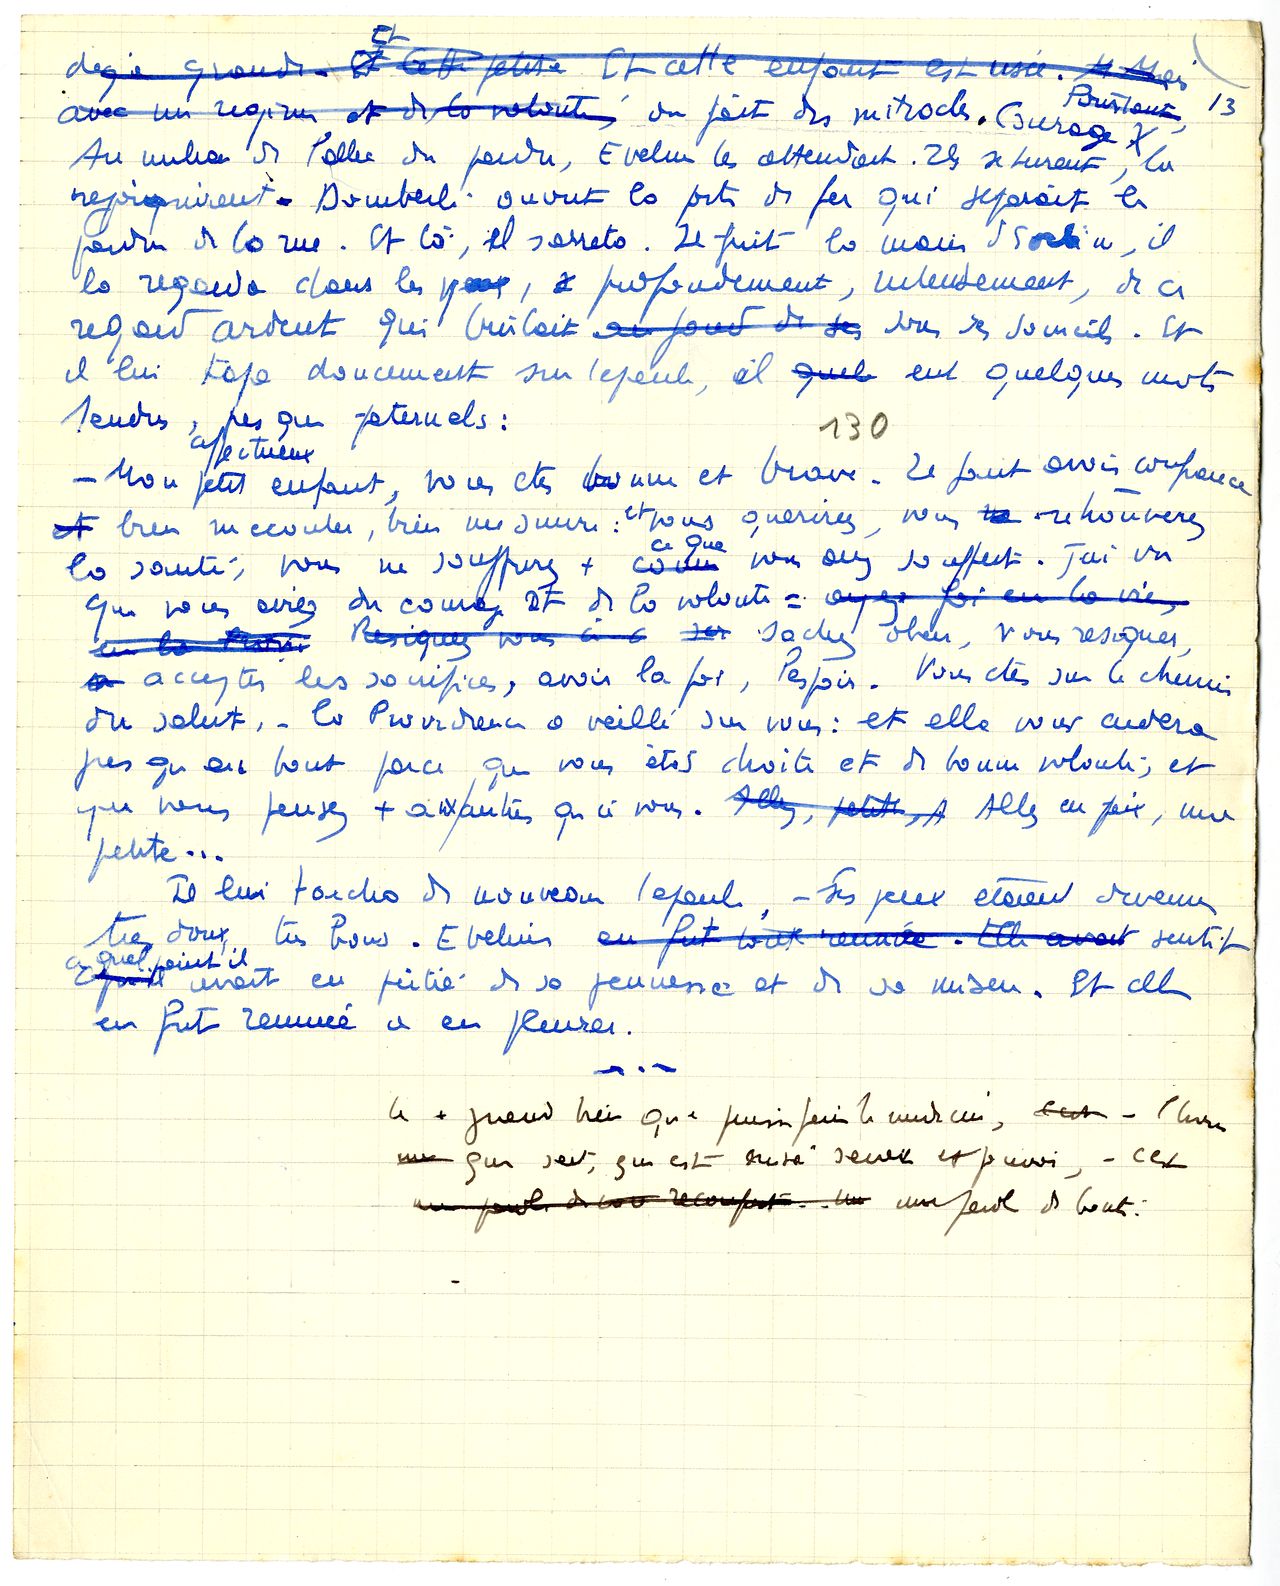 Et
deja grande. Et Cette petite Et cette enfant est usée. Mais
Pourtant, 13
avec un regime et de la volonté, on fait des miracles. Courage
Au milieu de l'allee du jardin, Eveline les attendait. Ils se turent, la
rejoignirent. Domberlé ouvrit la porte de fer qui separait le
jardin de la rue. Et là, il sarreta. Il prit la main d'Evelin, il
la regarda dans les yeux, profondement, intensement, de ce
regard ardent qui brûlait au fond de ses sous ses sourcils. Et
il lui tapa doucement sur l'epaule, il quelq eut quelques mots
tendres, presque paternels :
130
affectueux
– Mon petit enfant, vous etes bonne et brave. Il faut avoir confiance
et bien mecouter, bien me suivre : et vous guerirez, vous retrouverez
ce que
la santé, vous ne souffrirez + comme vous avez souffert. J'ai vu
que vous aviez du courage et de la volonté = ayez foi en la vie,
en la Provi Resignez vous à sachez obeir, vous resigner,
accepter les sacrifices, avoir la foi, l'espoir. Vous etes sur le chemin
du salut, – la Providence a veillé sur vous : et elle vous aidera
jusqu'au bout parce que vous êtes droite et de bonne volonté, et
que vous pensez + aux autres qu'à vous. Allez, petite, Allez en paix, ma
petite...
Il lui toucha de nouveau l'epaule, – Ses yeux etaient devenus
tres doux, tres bons. Eveline en fut toute remuée. Elle avait sentit
à quel point il
qu'il avait eu pitié de sa jeunesse et de sa misere. Et elle
en fut remuée à en pleurer.
le + grand bien que puisse faire le medecin, c'est – l'homme
qui sait, qui est censé savoir et pouvoir, – c'est
une parole de reconfort. Un une parole de bonté.